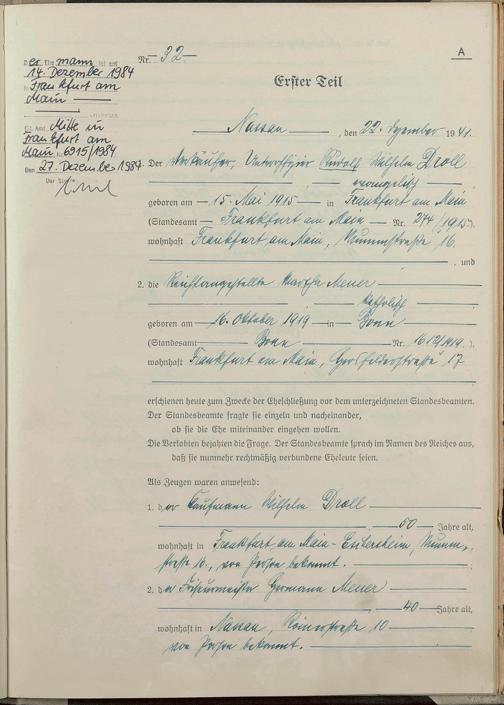 Der Ehemann ist am
14. Dezember 1984
in Frankfurt am
Main
Mitte in
Frankfurt am
Main Nr. 6915/1984
Den 27. Dezember 1984.
Nr. 32
A
Erster Teil
Nassau, den 22. Dezember 1941.
Der Verkäufer, Unteroffizier Rudolf Wilhelm Droll
evangelisch
geboren am 15. Mai 1915 in Frankfurt am Main
(Standesamt Frankfurt am Main Nr. 244/1915)
wohnhaft Frankfurt am Main, Mummstraße 16.
, und
2. die Reichsangestellte Martha Meuer
katholisch
geboren am 16. Oktober 1919 in Bonn
(Standesamt Bonn Nr. 1612/1919.)
wohnhaft Frankfurt am Main, Hersfelderstraße 17
erschienen heute zum Zwecke der Eheschließung vor dem unterzeichneten Standesbeamten.
Der Standesbeamte fragte sie einzeln und nacheinander,
ob sie die Ehe miteinander eingehen wollen.
Die Verlobten bejahten die Frage. Der Standesbeamte sprach im Namen des Reiches aus,
daß sie nunmehr rechtmäßig verbundene Eheleute seien.
Als Zeugen waren anwesend:
1. der Kaufmann Wilhelm Droll
50 Jahre alt,
wohnhaft in Frankfurt am Main-Eschersheim, Mumm-
straße 16., von Person bekannt.
2. der Friseurmeister Hermann Meuer
40 Jahre alt,
wohnhaft in Nassau, Römerstraße 10
von Person bekannt.